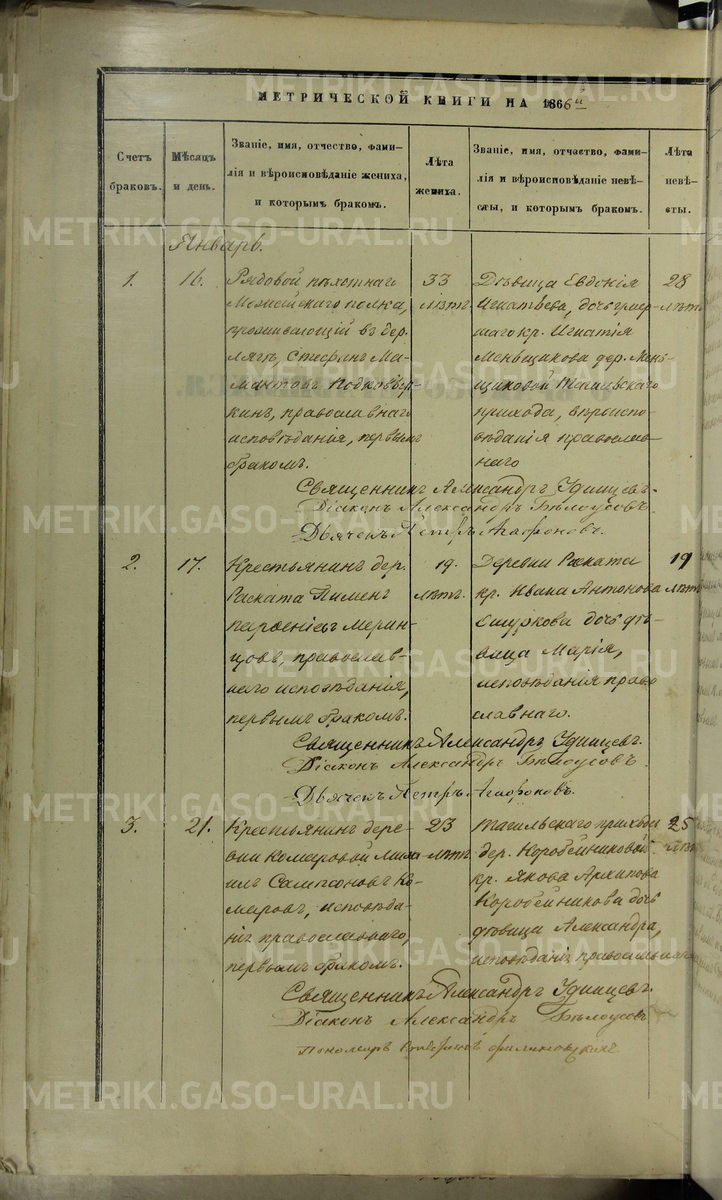 МЕТРИЧЕСКОЙ КНИГИ НА 1866й
Счетъ браковъ.
Мѣсяцъ и день.
Званіе, имя, отчество, фами-
лія и вѣроисповѣданіе жениха,
и которымъ бракомъ.
Лѣта жениха.
Званіе, имя, отчество, фами-
лія и вѣроисповѣданіе невѣ-
сты, и которымъ бракомъ.
Лѣта невѣ-
сты.
Январь.
1.
16.
Рядовой пѣхотнаго
полка,
проживающій въ дер.
Лягѣ, Стефанъ Ма-
мантовъ
кинъ, православнаго
исповѣданія, первымъ
бракомъ.
33
лѣтъ.
Дѣвица Евдокія
Игнатьева, дочь умер-
шаго кр. Игнатія
Меньщикова дер. Мень-
щиковой Тагильскаго
прихода, вѣроиспо-
вѣданія православ-
наго
28
лѣтъ
Священникъ Александръ Удинцевъ.
Діаконъ Александръ Бѣлоусовъ.
Дьячекъ Петръ Агафоновъ.
2.
17.
Крестьянинъ дер.
Раската Пименъ
Парфеніевъ Мерин-
цовъ, православ-
наго исповѣданія,
первымъ бракомъ.
19.
лѣтъ.
Деревни Раската
кр. Ивана Антонова
дочь дѣ-
вица Марія,
исповѣданія право-
славнаго.
19
лѣтъ
Священникъ Александръ Удинцевъ.
Діаконъ Александръ Бѣлоусовъ.
Дьячекъ Петръ Агафоновъ.
3.
21.
Крестьянинъ дере-
вни Комаровой Миха-
илъ Сампсоновъ Ко-
маровъ, исповѣда-
нія православнаго,
первымъ бракомъ.
23
лѣтъ
Тагильскаго прихода
дер. Коробейниковой
кр. Якова Архипова
Коробейникова дочь
дѣвица Александра,
исповѣданія православнаго
25
лѣтъ
Священникъ Александръ Удинцевъ.
Діаконъ Александръ Бѣлоусовъ
Пономарь
METRIKI.GASO-URAL.RU